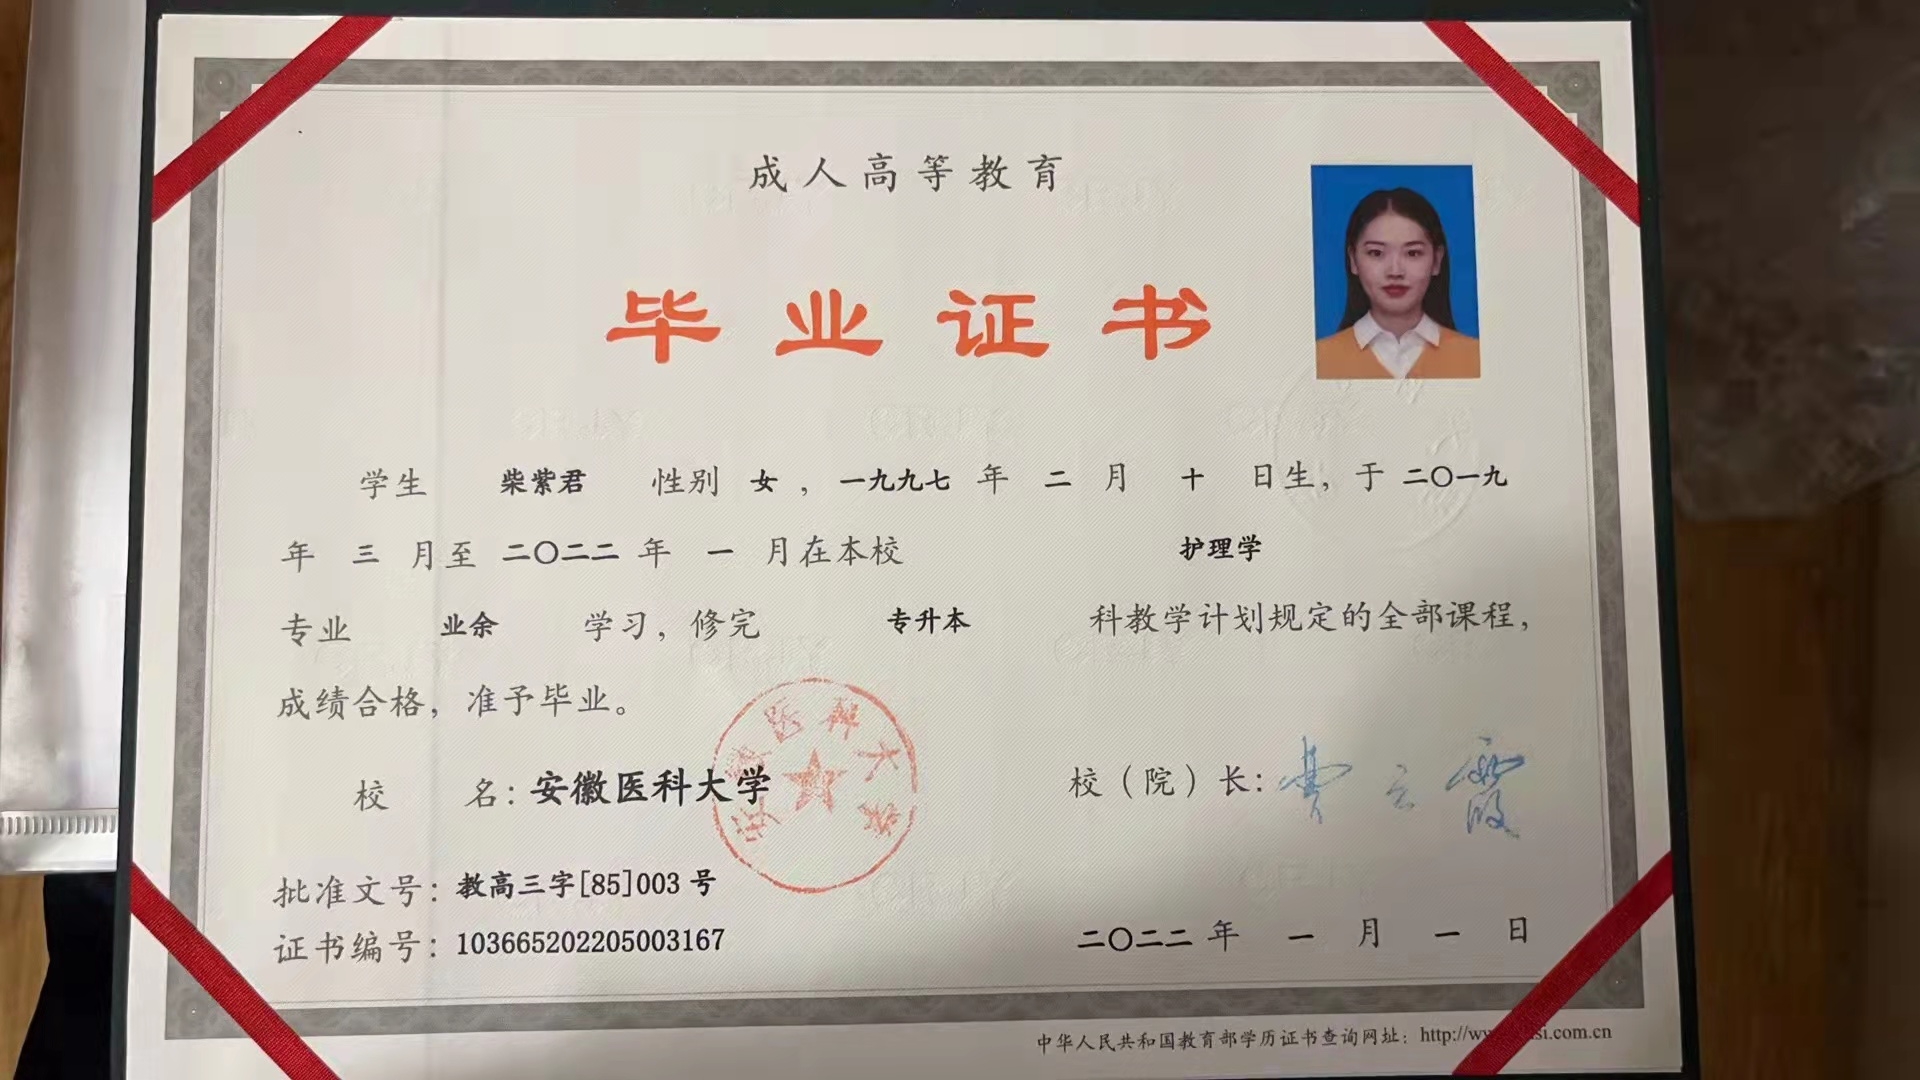 成人高等教育
毕业证书
学生 柴紫君 性别 女 ，一九九七 年 二 月 十 日生，于 二〇一九
年 三 月至 二〇二二 年 一 月在本校 护理学
专业 业余 学习，修完 专升本 科教学计划规定的全部课程，
成绩合格，准予毕业。
校 名：安徽医科大学
安徽医科大学
校（院）长：曹云霞
批准文号：教高三字[85]003 号
证书编号：103665202205003167
二〇二二 年 一 月 一 日
中华人民共和国教育部学历证书查询网址：http://ww si.com.cn